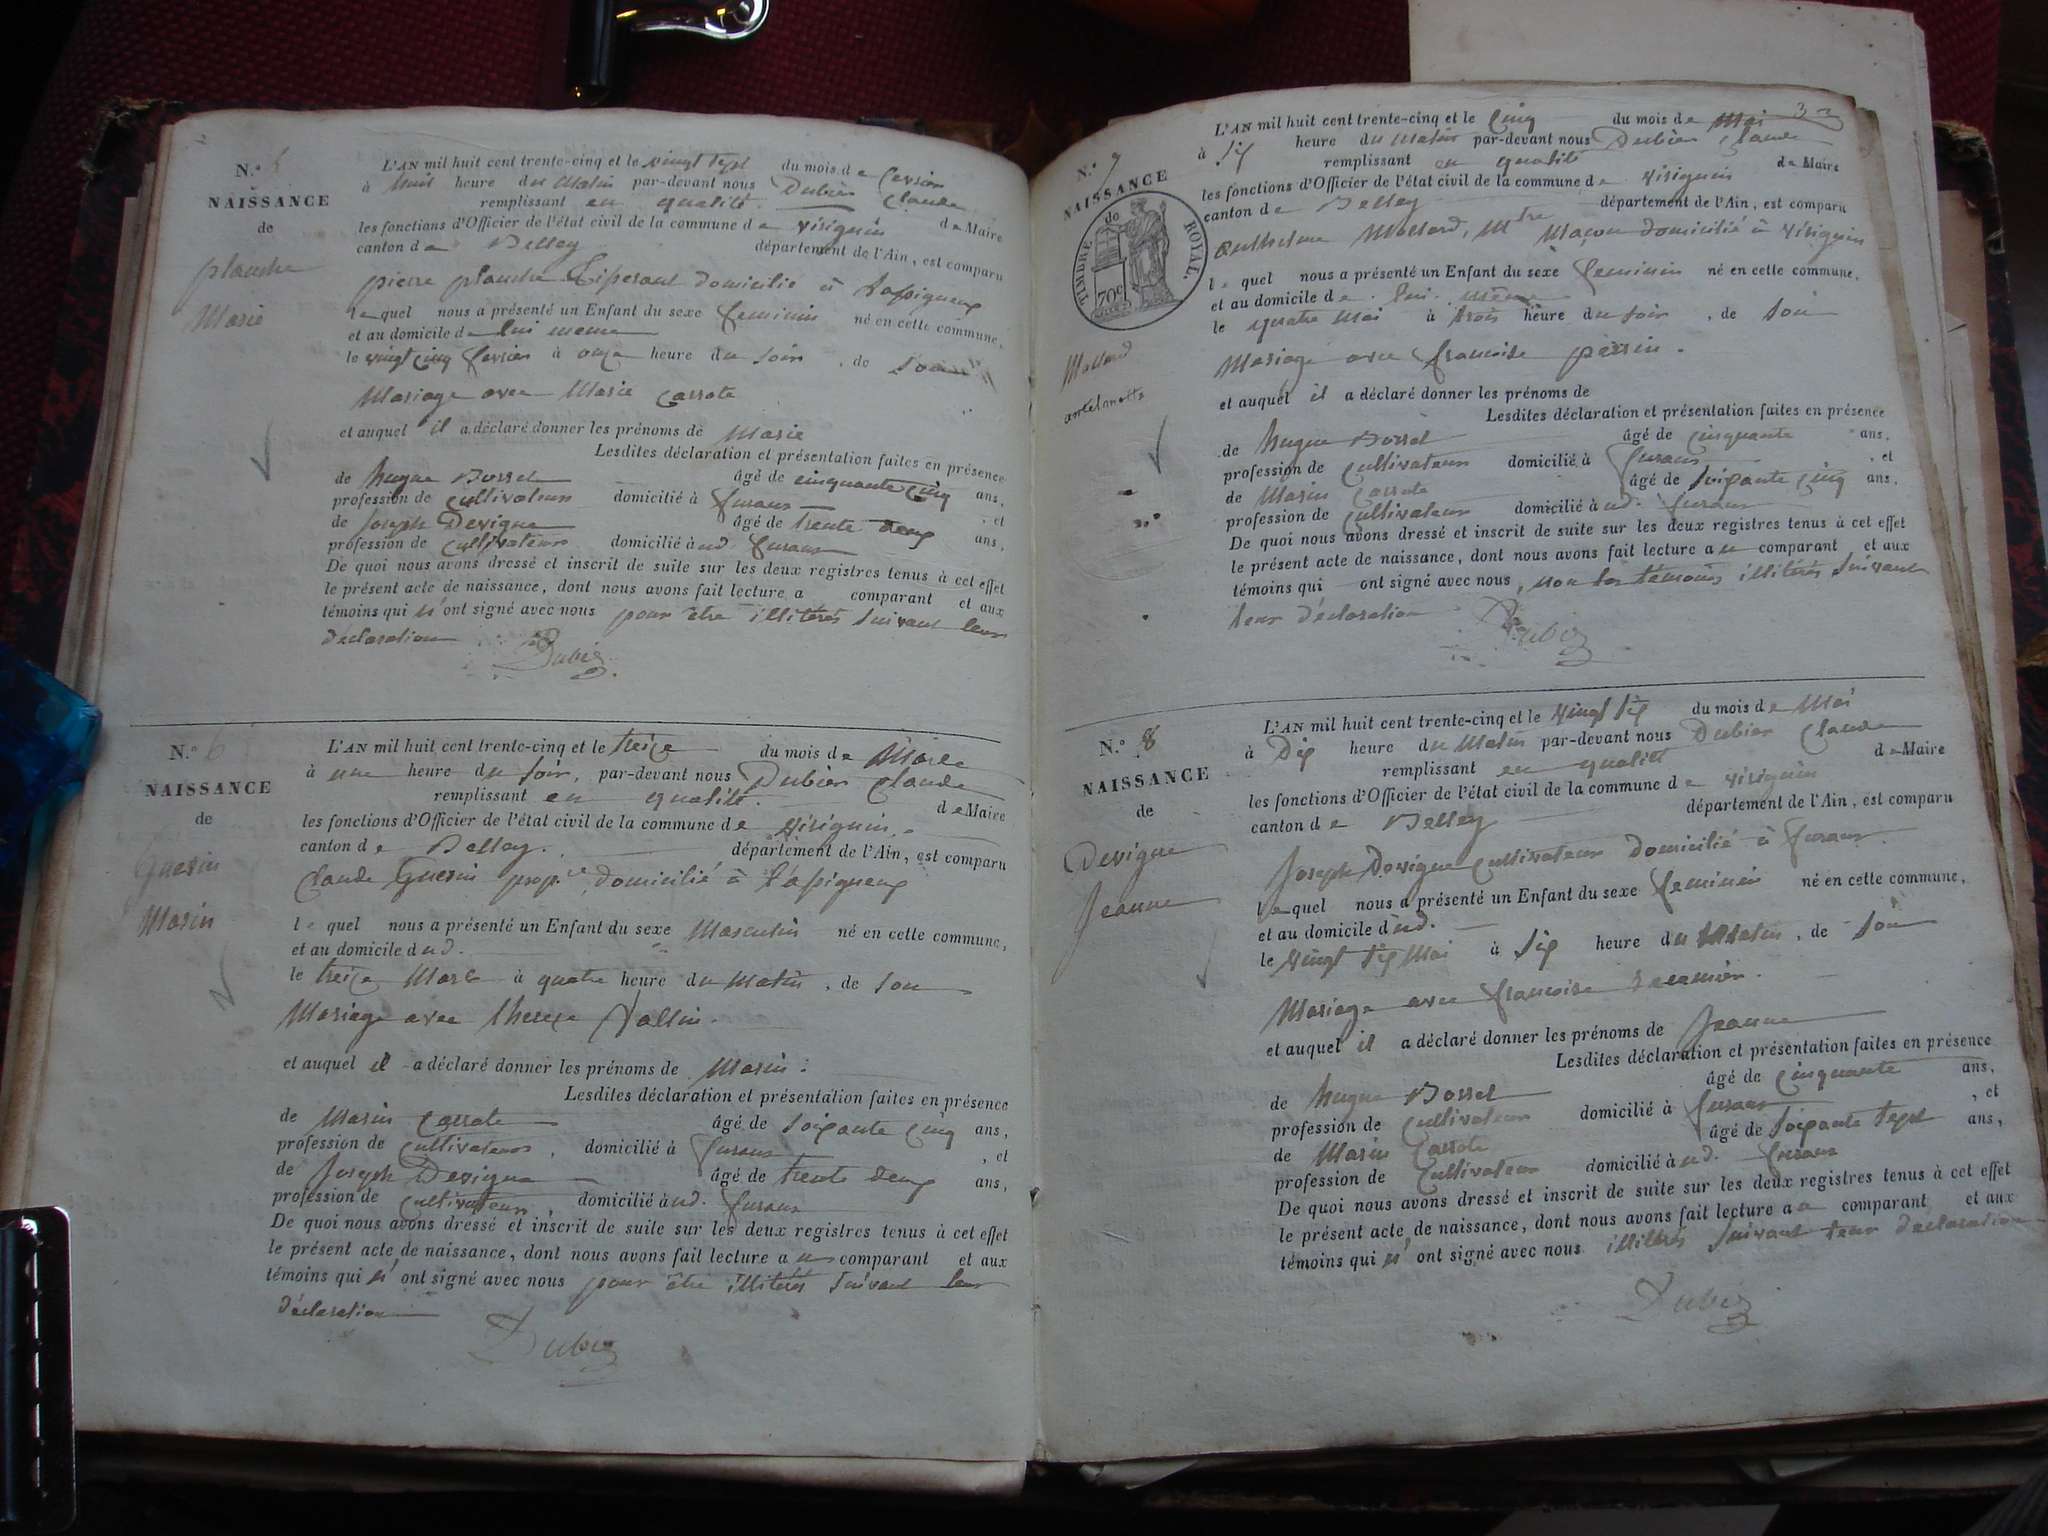 N.° 5
NAISSANCE
de
planche
Marie
L'AN mil huit cent trente-cinq et le vingt sept du mois de fevrier
à huit heure du Matin par-devant nous Dubier Claude
remplissant en qualité de Maire
les fonctions d'Officier de l'état civil de la commune de Virignin
canton de Belley département de l'Ain, est comparu
pierre planche Tisserant domicilié à
lequel nous a présenté un Enfant du sexe feminin né en cette commune,
et au domicile de lui meme
le vingt cinq fevrier à onze heure du soir, de son
Mariage avec Marie Carrote
et auquel il a déclaré donner les prénoms de Marie
Lesdites déclaration et présentation faites en présence
de hugue Borrel âgé de cinquante cinq ans,
profession de cultivateur domicilié à , et
de Joseph Devigne âgé de trente deux ans,
profession de cultivateur domicilié à ud.
De quoi nous avons dressé et inscrit de suite sur les deux registres tenus à cet effet
le présent acte de naissance, dont nous avons fait lecture a comparant et aux
témoins qui n'ont signé avec nous pour être illiterés suivant leur
déclaration
Dubier
N.° 6
NAISSANCE
de
Guerin
Marin
L'AN mil huit cent trente-cinq et le treize du mois de Mars
à une heure du soir, par-devant nous Dubier Claude
remplissant en qualité de Maire
les fonctions d'Officier de l'état civil de la commune de Virignin
canton de Belley. département de l'Ain, est comparu
Claude Guerin prop.re domicilié à
lequel nous a présenté un Enfant du sexe Masculin né en cette commune,
et au domicile dud.
le treize Mars à quatre heure du Matin, de son
Mariage avec therese Vallin.
et auquel il a déclaré donner les prénoms de Marin.
Lesdites déclaration et présentation faites en présence
de Marin Carrote âgé de soixante cinq ans,
profession de cultivateur, domicilié à , et
de Joseph Devigne âgé de trente deux ans,
profession de cultivateur, domicilié à ud.
De quoi nous avons dressé et inscrit de suite sur les deux registres tenus à cet effet
le présent acte de naissance, dont nous avons fait lecture au comparant et aux
témoins qui n'ont signé avec nous pour être illiterés suivant leur
déclaration
Dubier
3
N.° 7
NAISSANCE
TIMBRE ROYAL.
70c
Mollard
L'AN mil huit cent trente-cinq et le cinq du mois de Mai
à six heure du Matin par-devant nous Dubier Claude
remplissant en qualité de Maire
les fonctions d'Officier de l'état civil de la commune de Virignin
canton de Belley département de l'Ain, est comparu
anthelme Mollard, Mtre Maçon domicilié à Virignin
lequel nous a présenté un Enfant du sexe feminin né en cette commune,
et au domicile de lui même
le quatre Mai à trois heure du soir, de son
Mariage avec francoise perrin.
et auquel il a déclaré donner les prénoms de
Lesdites déclaration et présentation faites en présence
de hugue Borrel âgé de cinquante ans,
profession de cultivateur domicilié à , et
de Marin Carrote âgé de soixante cinq ans,
profession de cultivateur domicilié à ud.
De quoi nous avons dressé et inscrit de suite sur les deux registres tenus à cet effet
le présent acte de naissance, dont nous avons fait lecture au comparant et aux
témoins qui ont signé avec nous, non les témoins illiterés suivant
leur déclaration
Dubier
N.° 8
NAISSANCE
de
Devigne
Jeanne
L'AN mil huit cent trente-cinq et le vingt six du mois de Mai
à Dix heure du Matin par-devant nous Dubier Claude
remplissant en qualité de Maire
les fonctions d'Officier de l'état civil de la commune de Virignin
canton de Belley département de l'Ain, est comparu
Joseph Devigne cultivateur domicilié à
lequel nous a présenté un Enfant du sexe feminin né en cette commune,
et au domicile dud.
le vingt six Mai à six heure du Matin, de son
Mariage avec francoise
et auquel il a déclaré donner les prénoms de Jeanne
Lesdites déclaration et présentation faites en présence
de hugue Borrel âgé de cinquante ans,
profession de cultivateur domicilié à , et
de Marin Carrote âgé de soixante sept ans,
profession de cultivateur domicilié à ud.
De quoi nous avons dressé et inscrit de suite sur les deux registres tenus à cet effet
le présent acte de naissance, dont nous avons fait lecture au comparant et aux
témoins qui n'ont signé avec nous illiterés suivant leur déclaration
Dubier